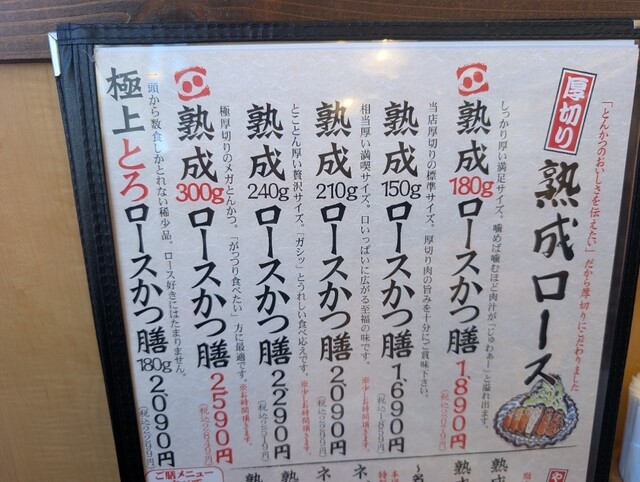 「とんかつのおいしさを伝えたい」だから厚切りにこだわりました
厚切り
熟成ロース
しっかり厚い満足サイズ。噛めば噛むほど肉汁が「じゅわぁー」と溢れ出ます。
熟成180gロースかつ膳
1,890円
(税込2079円)
当店厚切りの標準サイズ。厚切り肉の旨みを十分にご賞味下さい。
熟成150gロースかつ膳
1,690円
(税込1859円)
相当厚い満喫サイズ。口いっぱいに広がる至福の味です。※少しお時間頂きます。
熟成210gロースかつ膳
2,090円
(税込2299円)
とことん厚い贅沢サイズ。「ガシッ」とうれしい食べ応えです。※少しお時間頂きます。
熟成240gロースかつ膳
2,290円
(税込2519円)
極厚切りのメガとんかつ。「がっつり食べたい」方に最適です。※お時間頂きます。
熟成300gロースかつ膳
2,590円
(税込2849円)
一頭から数食しかとれない稀少品。ロース好きにはたまりません。
極上とろロースかつ膳
180g
2,090円
(税込2299円)
や
熟成
熟成
ネ
ネ
熟
熟
ご膳メニュー